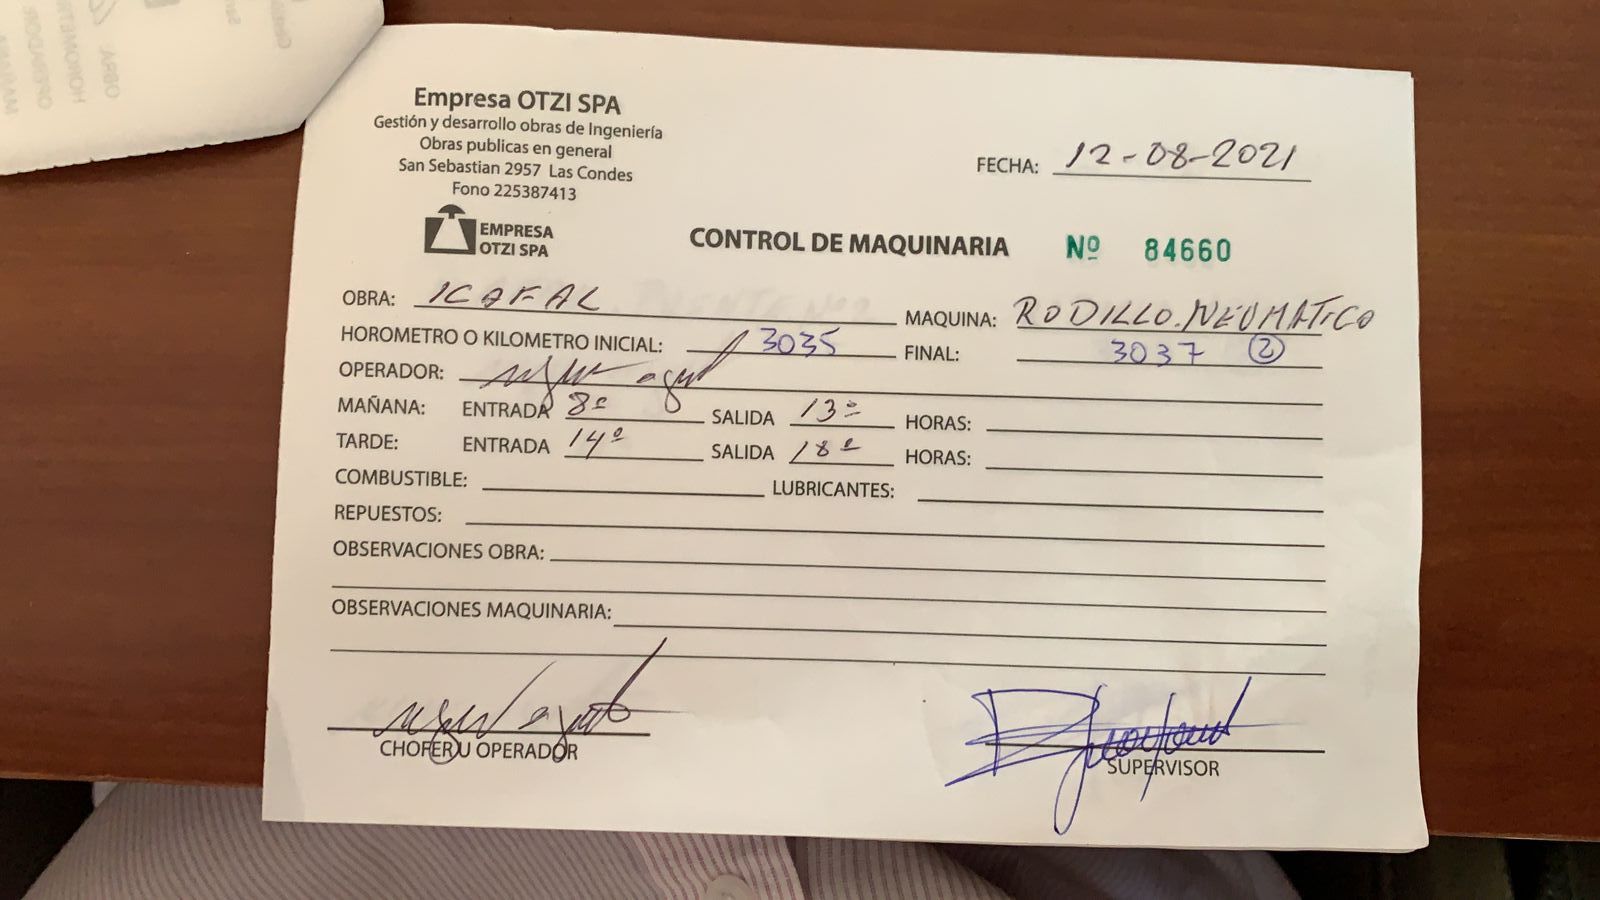 Empresa OTZI SPA
Gestión y desarrollo obras de Ingeniería
Obras publicas en general
San Sebastian 2957 Las Condes
Fono 225387413
FECHA: 12-08-2021
EMPRESA
OTZI SPA
CONTROL DE MAQUINARIA Nº 84660
OBRA: ICAFAL MAQUINA: RODILLO. NEUMATICO
HOROMETRO O KILOMETRO INICIAL: 3035 FINAL: 3037 2
OPERADOR:
MAÑANA: ENTRADA 8º SALIDA 13º HORAS:
TARDE: ENTRADA 14º SALIDA 18º HORAS:
COMBUSTIBLE: LUBRICANTES:
REPUESTOS:
OBSERVACIONES OBRA:
OBSERVACIONES MAQUINARIA:
CHOFER U OPERADOR SUPERVISOR